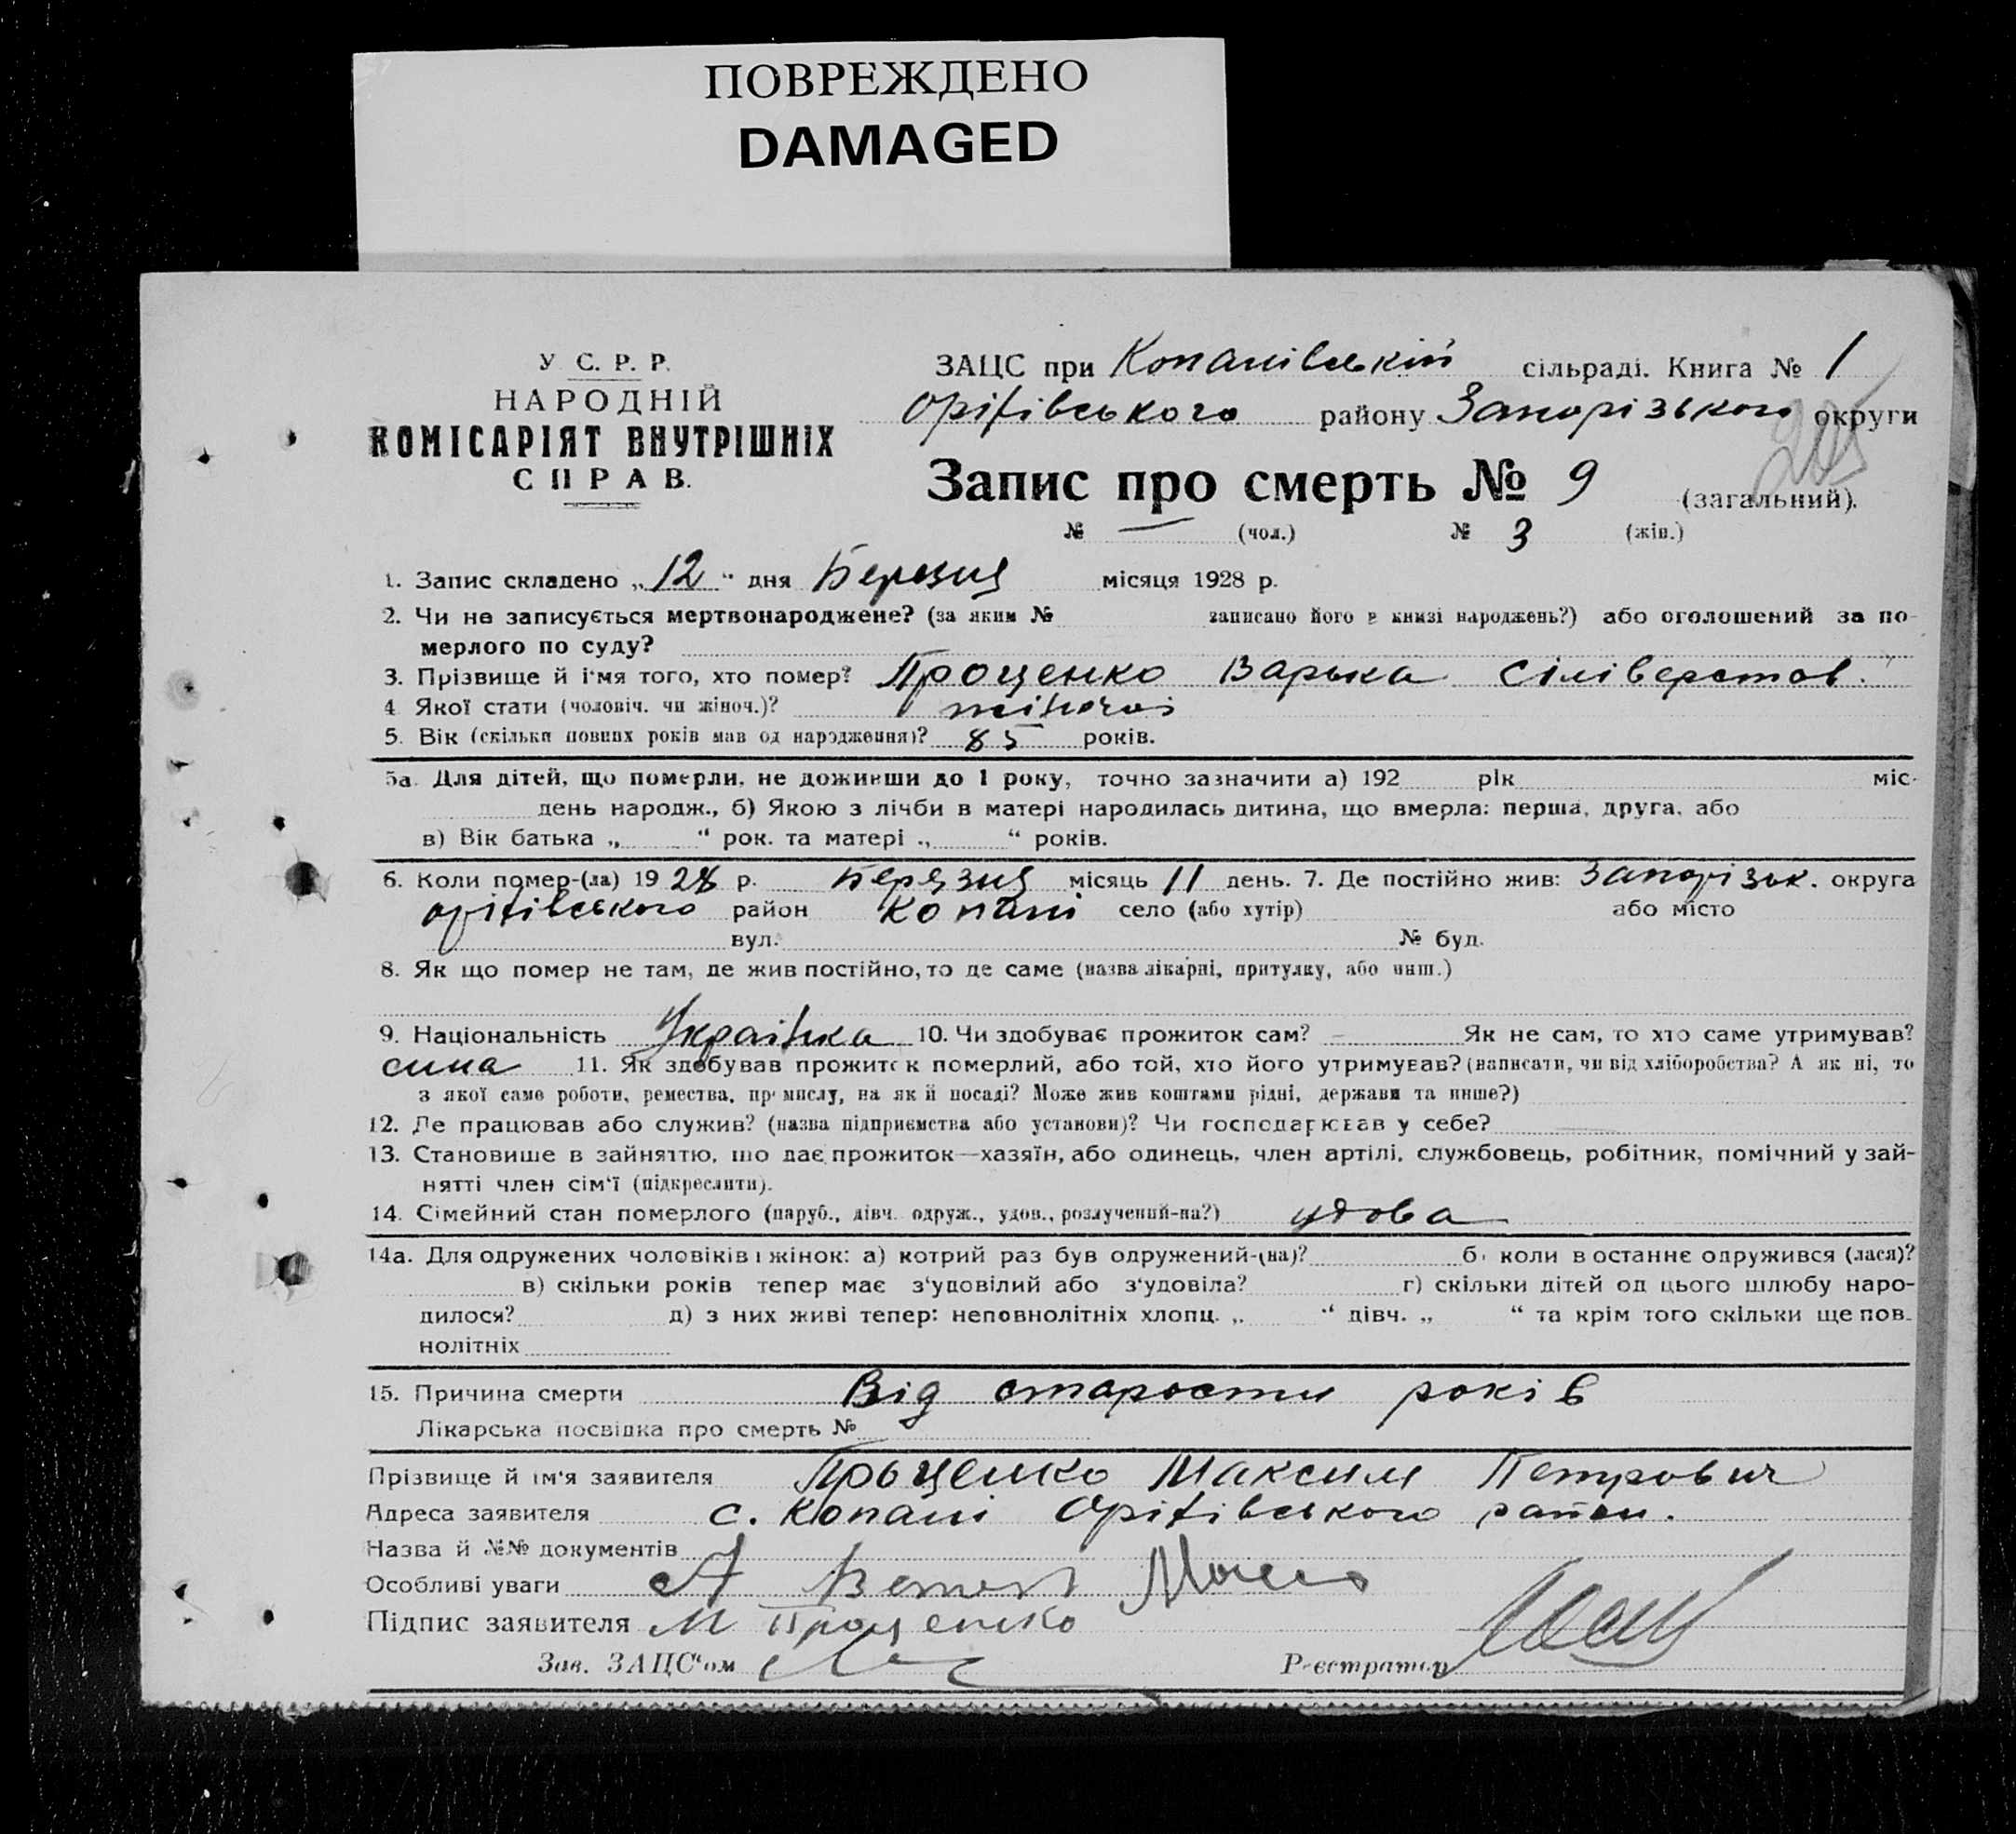 ПОВРЕЖДЕНО
DAMAGED
У. С. Р. Р.
НАРОДНІЙ
КОМІСАРІЯТ ВНУТРІШНІХ
СПРАВ.
ЗАЦС при Копанівській сільраді. Книга № 1
Оріхівського району Запорізького округи
205
Запис про смерть № 9 (загальний).
№ — (чол.) № 3 (жін.)
1. Запис складено „12“ дня Березня місяця 1928 р.
2. Чи не записується мертвонароджене? (за яким № записано його в книзі народжень?) або оголошений за по-
мерлого по суду?
3. Прізвище й ім'я того, хто помер? Проценко Варька Сіліверстов.
4. Якої стати (чоловіч. чи жіноч.)?
5. Вік (скільки повних років мав од народження)? 85 років.
5а. Для дітей, що померли, не доживши до 1 року, точно зазначити а) 192 рік міс-
день народж., б) Якою з лічби в матері народилась дитина, що вмерла: перша, друга, або
в) Вік батька „ “ рок. та матері „ “ років.
6. Коли помер-(ла) 1928 р. Березня місяць 11 день. 7. Де постійно жив: Запорізьк. округа
Оріхівського район Копані село (або хутір) або місто
вул. № буд.
8. Як що помер не там, де жив постійно, то де саме (назва лікарні, притулку, або инш.)
9. Національність Українка 10. Чи здобуває прожиток сам? – Як не сам, то хто саме утримував?
сина 11. Як здобував прожиток померлий, або той, хто його утримував? (написати, чи від хліборобства? А як ні, то
з якої саме роботи, ремества, промислу, на якій посаді? Може жив коштами рідні, держави та инше?)
12. Де працював або служив? (назва підприємства або установи)? Чи господарював у себе?
13. Становище в зайняттю, що дає прожиток—хазяїн, або одинець, член артілі, службовець, робітник, помічний у зай-
нятті член сім'ї (підкреслити).
14. Сімейний стан померлого (паруб., дівч. одруж., удов., розлучений-на?) удова
14а. Для одружених чоловіків і жінок: а) котрий раз був одружений-(на)? б) коли в останнє одружився (лася)?
в) скільки років тепер має з'удовілий або з'удовіла? г) скільки дітей од цього шлюбу наро-
дилося? д) з них живі тепер: неповнолітніх хлопц. „ “ дівч. „ “ та крім того скільки ще пов-
нолітніх
15. Причина смерти Від старости років
Лікарська посвідка про смерть №
Прізвище й ім'я заявителя Проценко Максим Петрович
Адреса заявителя с. Копані Оріхівського район.
Назва й №№ документів
Особливі уваги
Підпис заявителя М Проценко
Зав. ЗАЦС'ом
Реєстратор